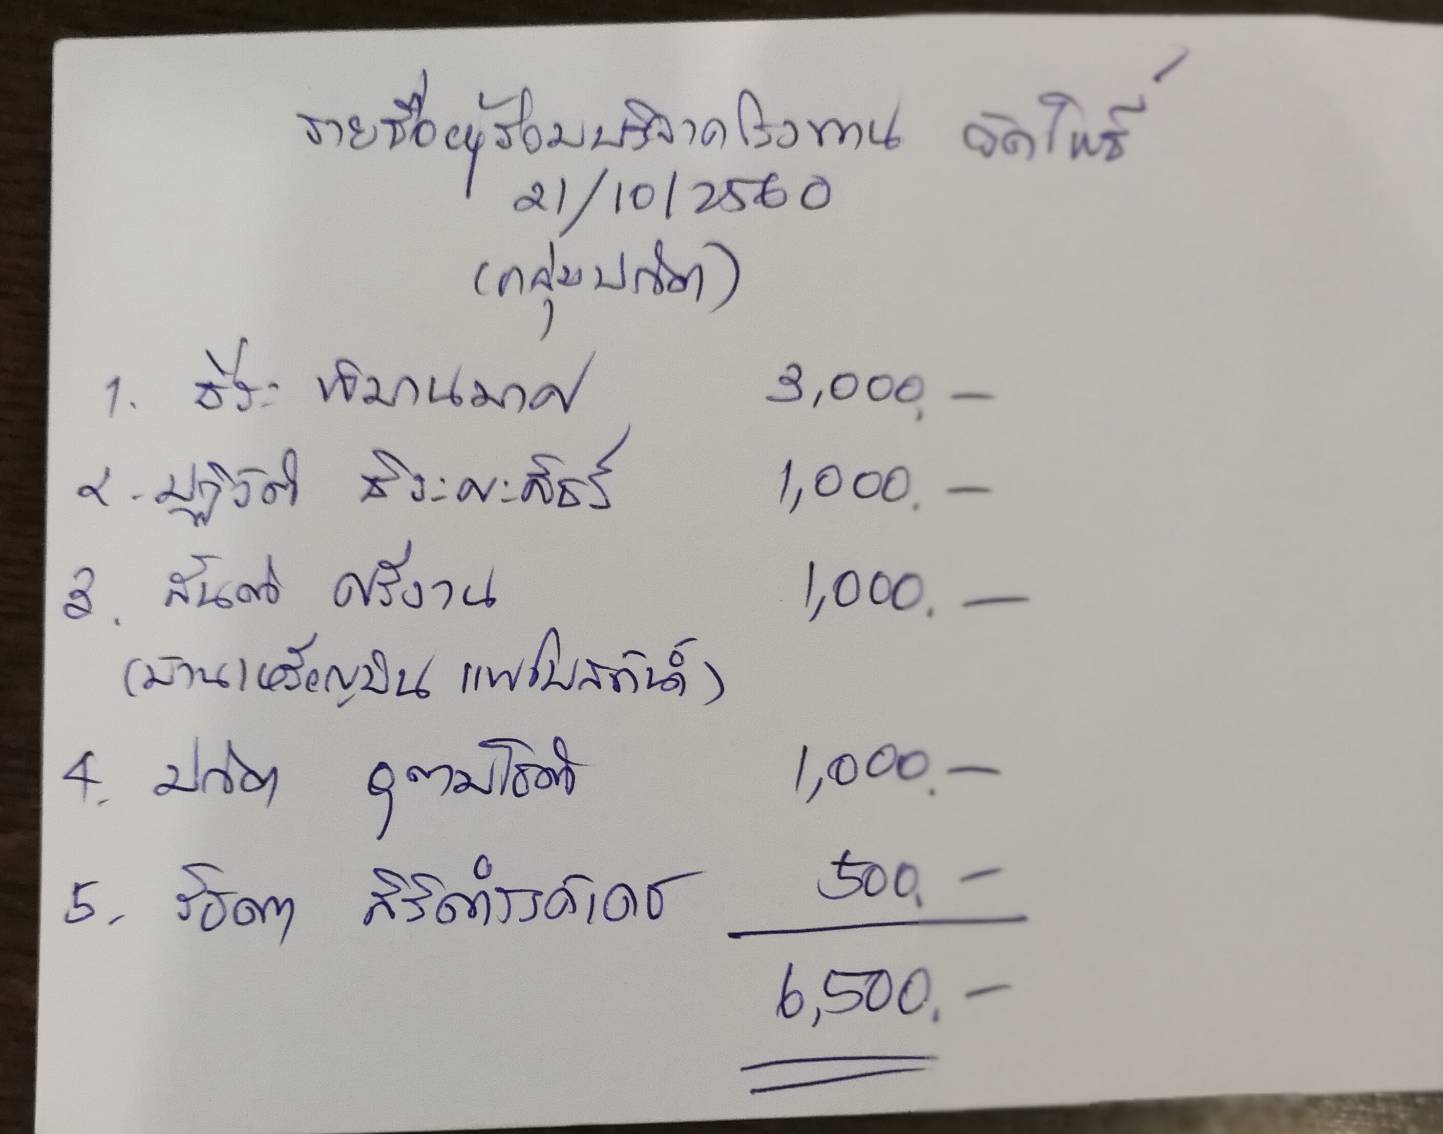 รายชื่อผู้ร่วมบริจาคโรงทาน วัดโพธิ์
21/10/2560
(กลุ่มปณิตา)
1. ธีระ พิมานมาศ 3,000.—
2. ปฏิวัติ ธีระยะสิธร์ 1,000.—
3. สันติ ศรีงาน 1,000.—
(บ้านเหรียญบิน แฟชั่นสถินี)
4. ปณิตา อุดมโชติ 1,000.—
5. รัชิตา สิริดำรงค์เดช 500.—
6,500.—